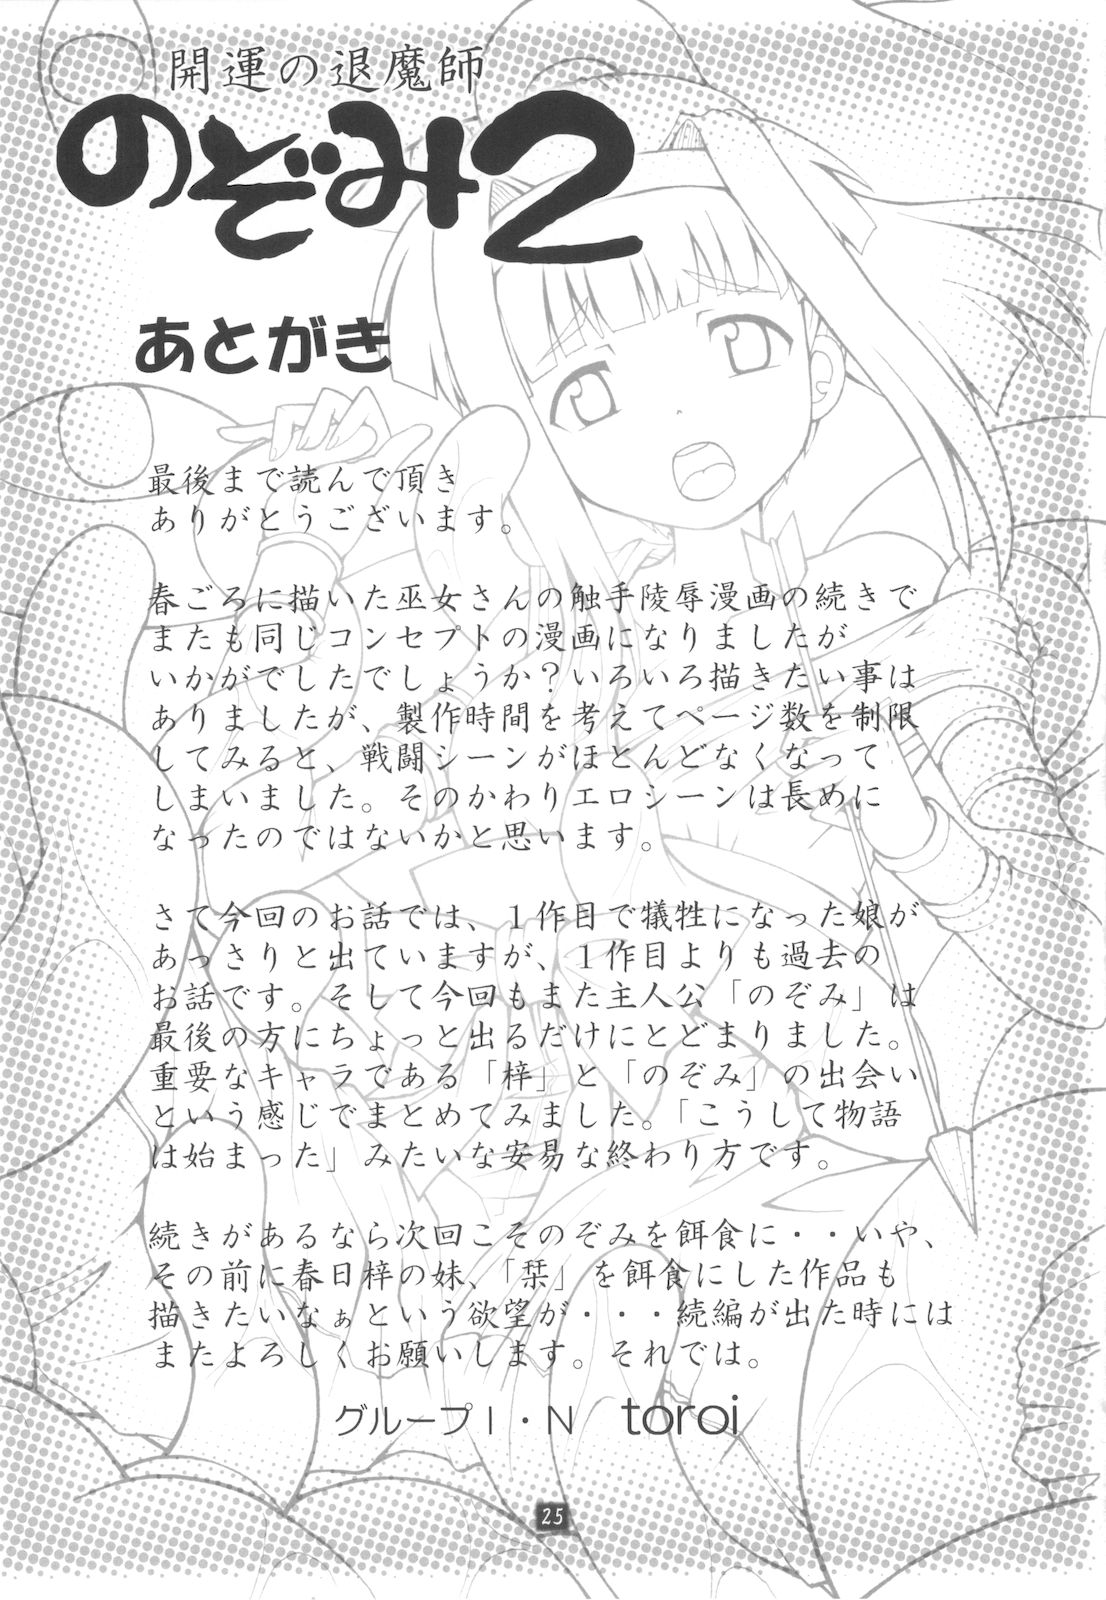 開運の退魔師
のぞみ2
あとがき
最後まで読んで頂き
ありがとうございます。
春ごろに描いた巫女さんの触手陵辱漫画の続きで
またも同じコンセプトの漫画になりましたが
いかがでしたでしょうか？いろいろ描きたい事は
ありましたが、製作時間を考えてページ数を制限
してみると、戦闘シーンがほとんどなくなって
しまいました。そのかわりエロシーンは長めに
なったのではないかと思います。
さて今回のお話では、１作目で犠牲になった娘が
あっさりと出ていますが、１作目よりも過去の
お話です。そして今回もまた主人公「のぞみ」は
最後の方にちょっと出るだけにとどまりました。
重要なキャラである「梓」と「のぞみ」の出会い
という感じでまとめてみました。「こうして物語
は始まった」みたいな安易な終わり方です。
続きがあるなら次回こそのぞみを餌食に・・いや、
その前に春日梓の妹、「栞」を餌食にした作品も
描きたいなぁという欲望が・・・続編が出た時には
またよろしくお願いします。それでは。
グループI・N toroi
25